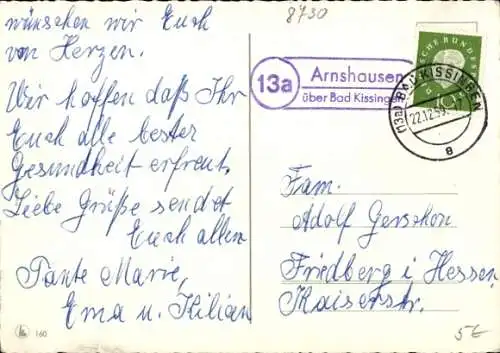 wünschen wir Euch
von Herzen.
Wir hoffen daß Ihr
Euch alle bester
Gesundheit erfreut.
Liebe Grüße sendet
Euch allen
Tante Marie,
Erna u. Kilian
160
8730
13a
Arnshausen
über Bad Kissingen
(13a) BAD KISSINGEN
22.12.59
a
Fam.
Adolf Gerschon
Friedberg i. Hessen
Kaiserstr.
5€